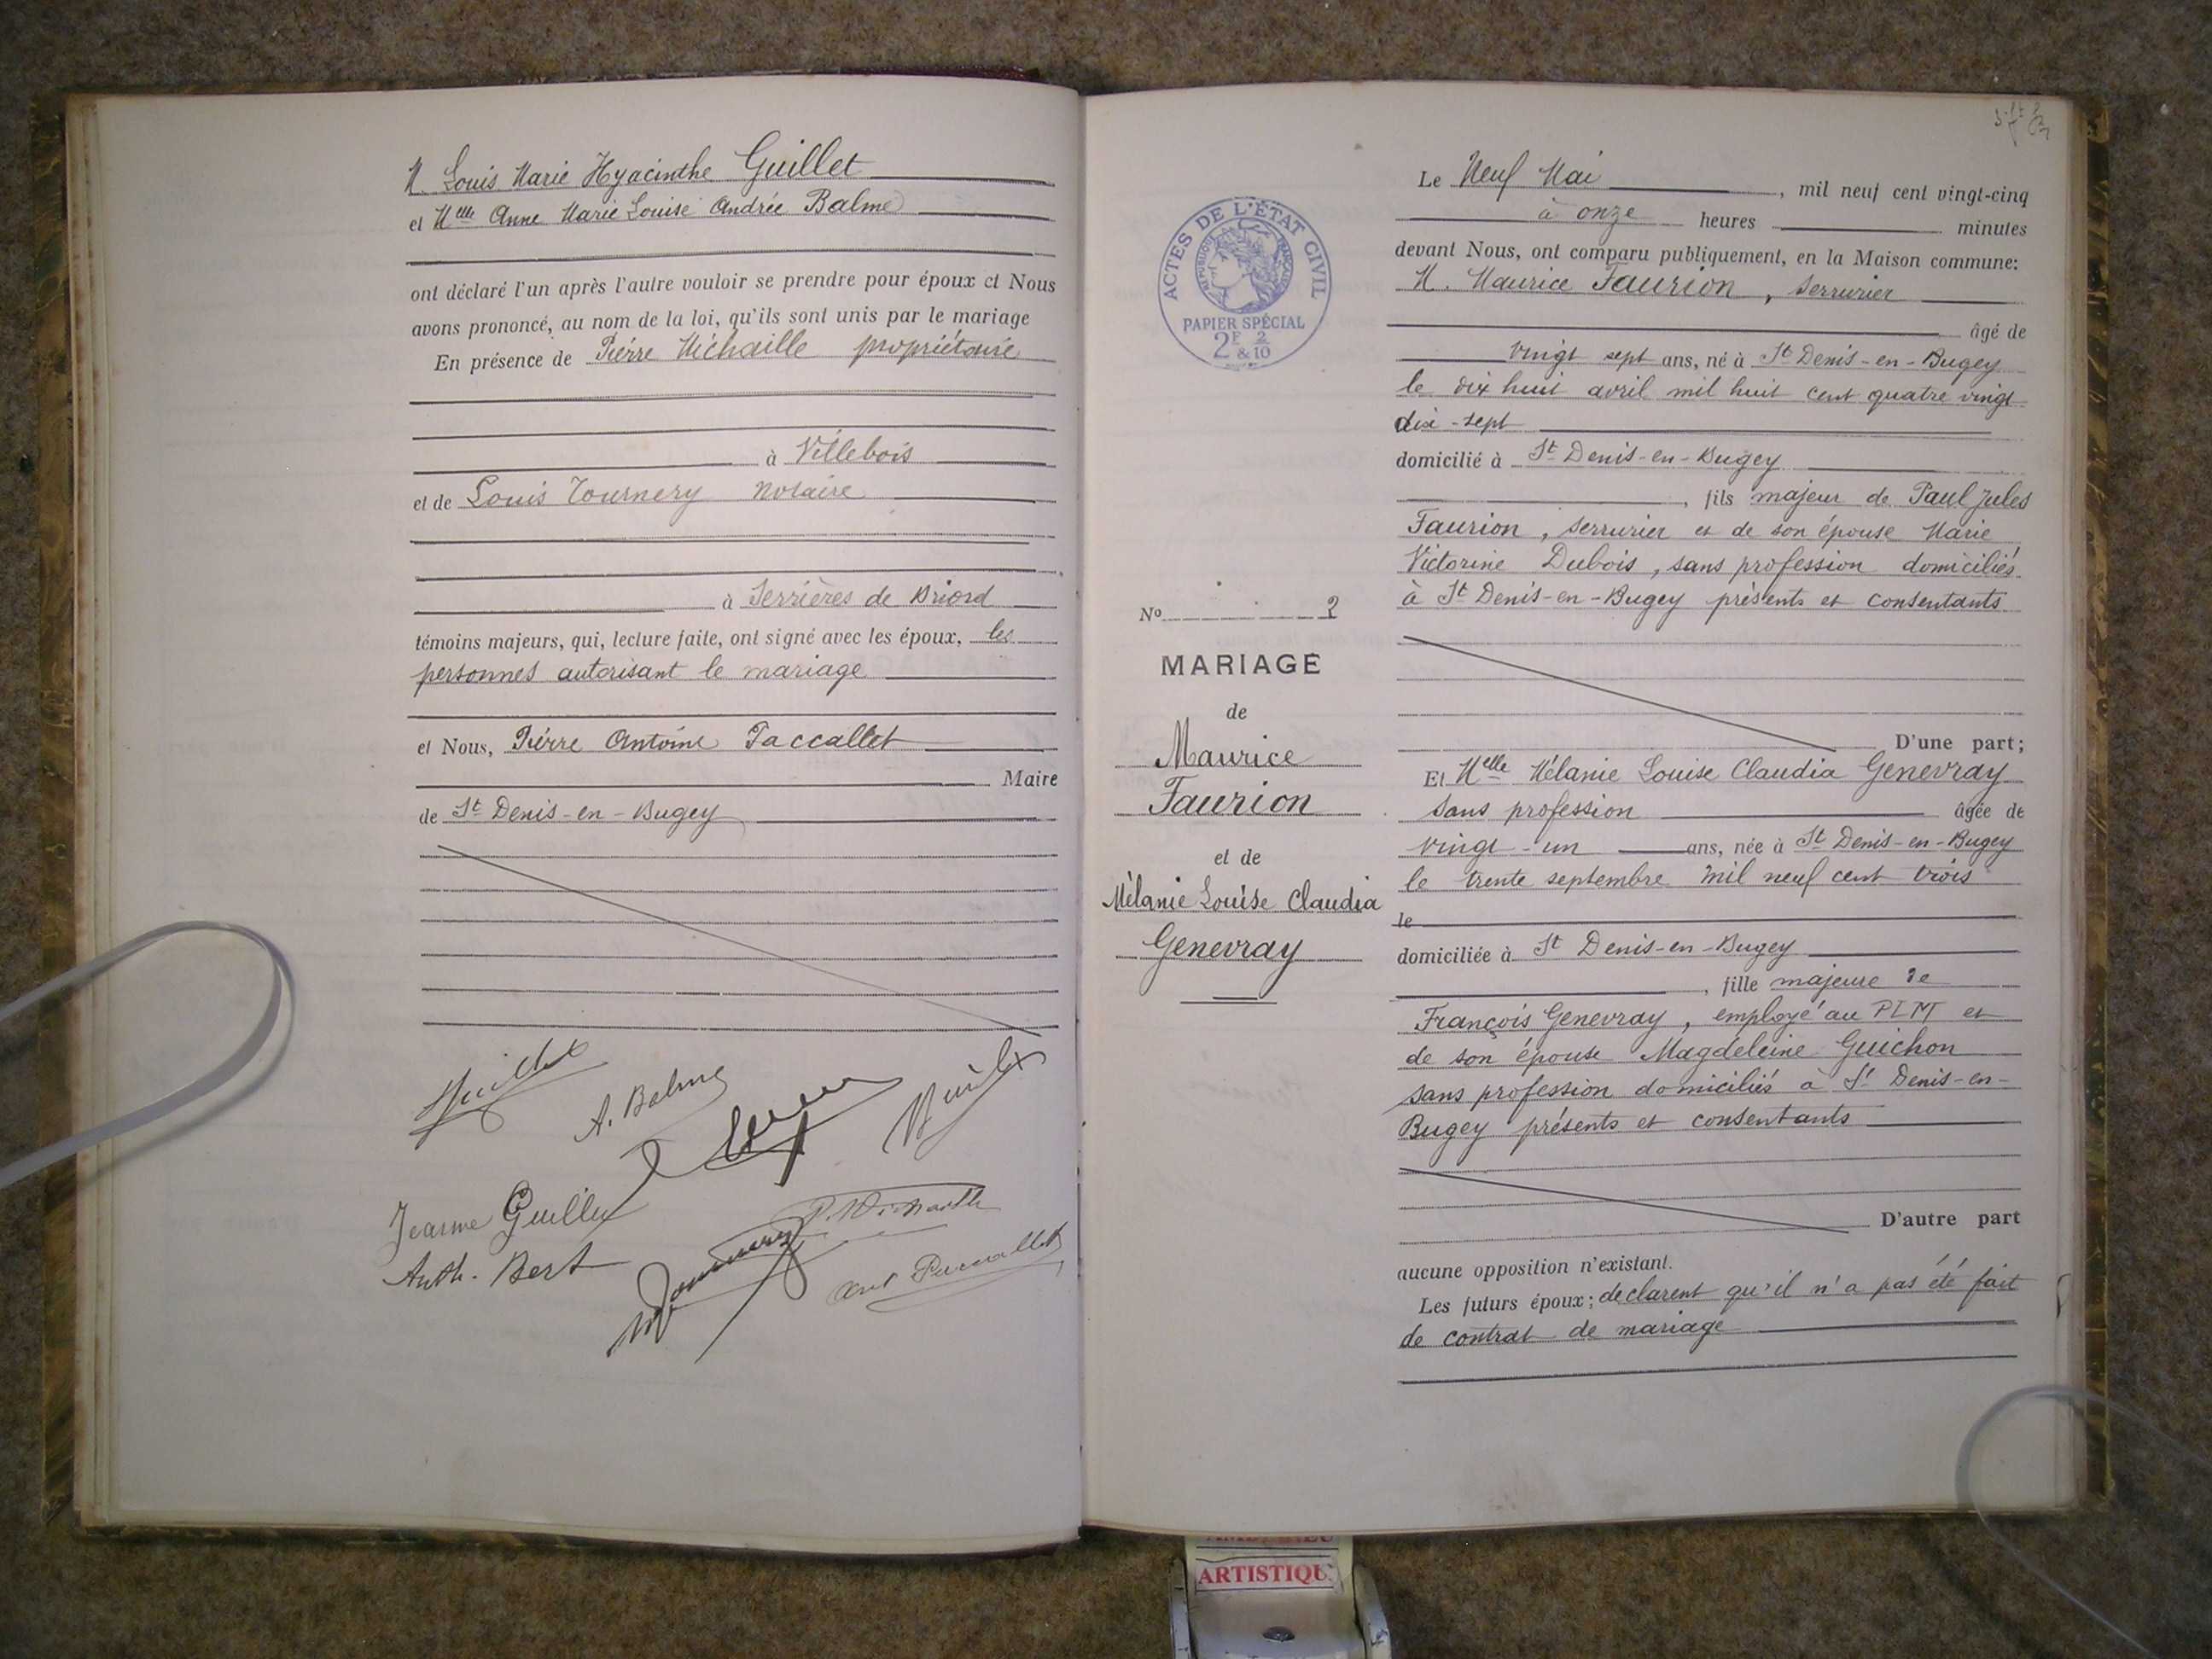 M. Louis Marie Hyacinthe Guillet
et Melle Anne Marie Louise Andrée Balme
ont déclaré l'un après l'autre vouloir se prendre pour époux et Nous
avons prononcé, au nom de la loi, qu'ils sont unis par le mariage
En présence de Pierre Michaille propriétaire
à Villebois
et de Louis Tournery notaire
à Serrières de Briord
témoins majeurs, qui, lecture faite, ont signé avec les époux, les
personnes autorisant le mariage
et Nous, Pierre Antoine Paccallet
Maire
de St Denis-en-Bugey
Guillet
A. Balme
Jeanne Guillet
Anth. Bert
Ant Paccallet
ACTES DE L'ÉTAT CIVIL
PAPIER SPÉCIAL
2F 2
&10
No 2
MARIAGE
de
Maurice
Faurion
et de
Mélanie Louise Claudia
Genevray
Le Neuf Mai, mil neuf cent vingt-cinq
à onze heures minutes
devant Nous, ont comparu publiquement, en la Maison commune:
M. Maurice Faurion, serrurier
âgé de
vingt sept ans, né à St Denis-en-Bugey
le dix huit avril mil huit cent quatre vingt
dix-sept
domicilié à St Denis-en-Bugey
, fils majeur de Paul Jules
Faurion, serrurier et de son épouse Marie
Victorine Dubois, sans profession domiciliés
à St Denis-en-Bugey présents et consentants
D'une part;
Et Melle Mélanie Louise Claudia Genevray
sans profession âgée de
vingt-un ans, née à St Denis-en-Bugey
le trente septembre mil neuf cent trois
le
domiciliée à St Denis-en-Bugey
, fille majeure de
François Genevray, employé au PLM et
de son épouse Magdeleine Guichon
sans profession domiciliés à St Denis-en-
Bugey présents et consentants
D'autre part
aucune opposition n'existant.
Les futurs époux; declarent qu'il n'a pas été fait
de contrat de mariage
ARTISTIQU